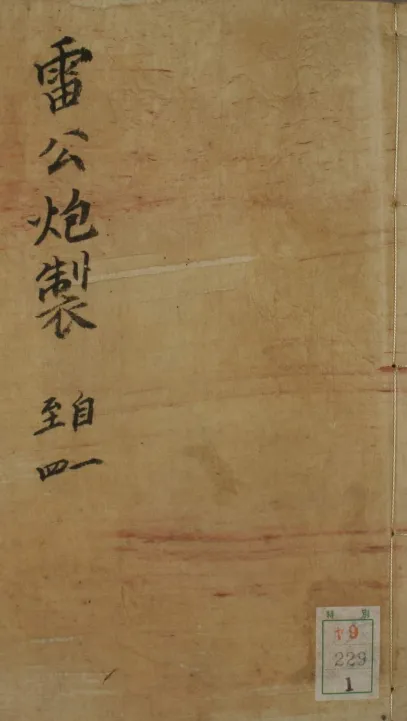 雷公炮製
自一
至四
特別
ヤ9
229
1